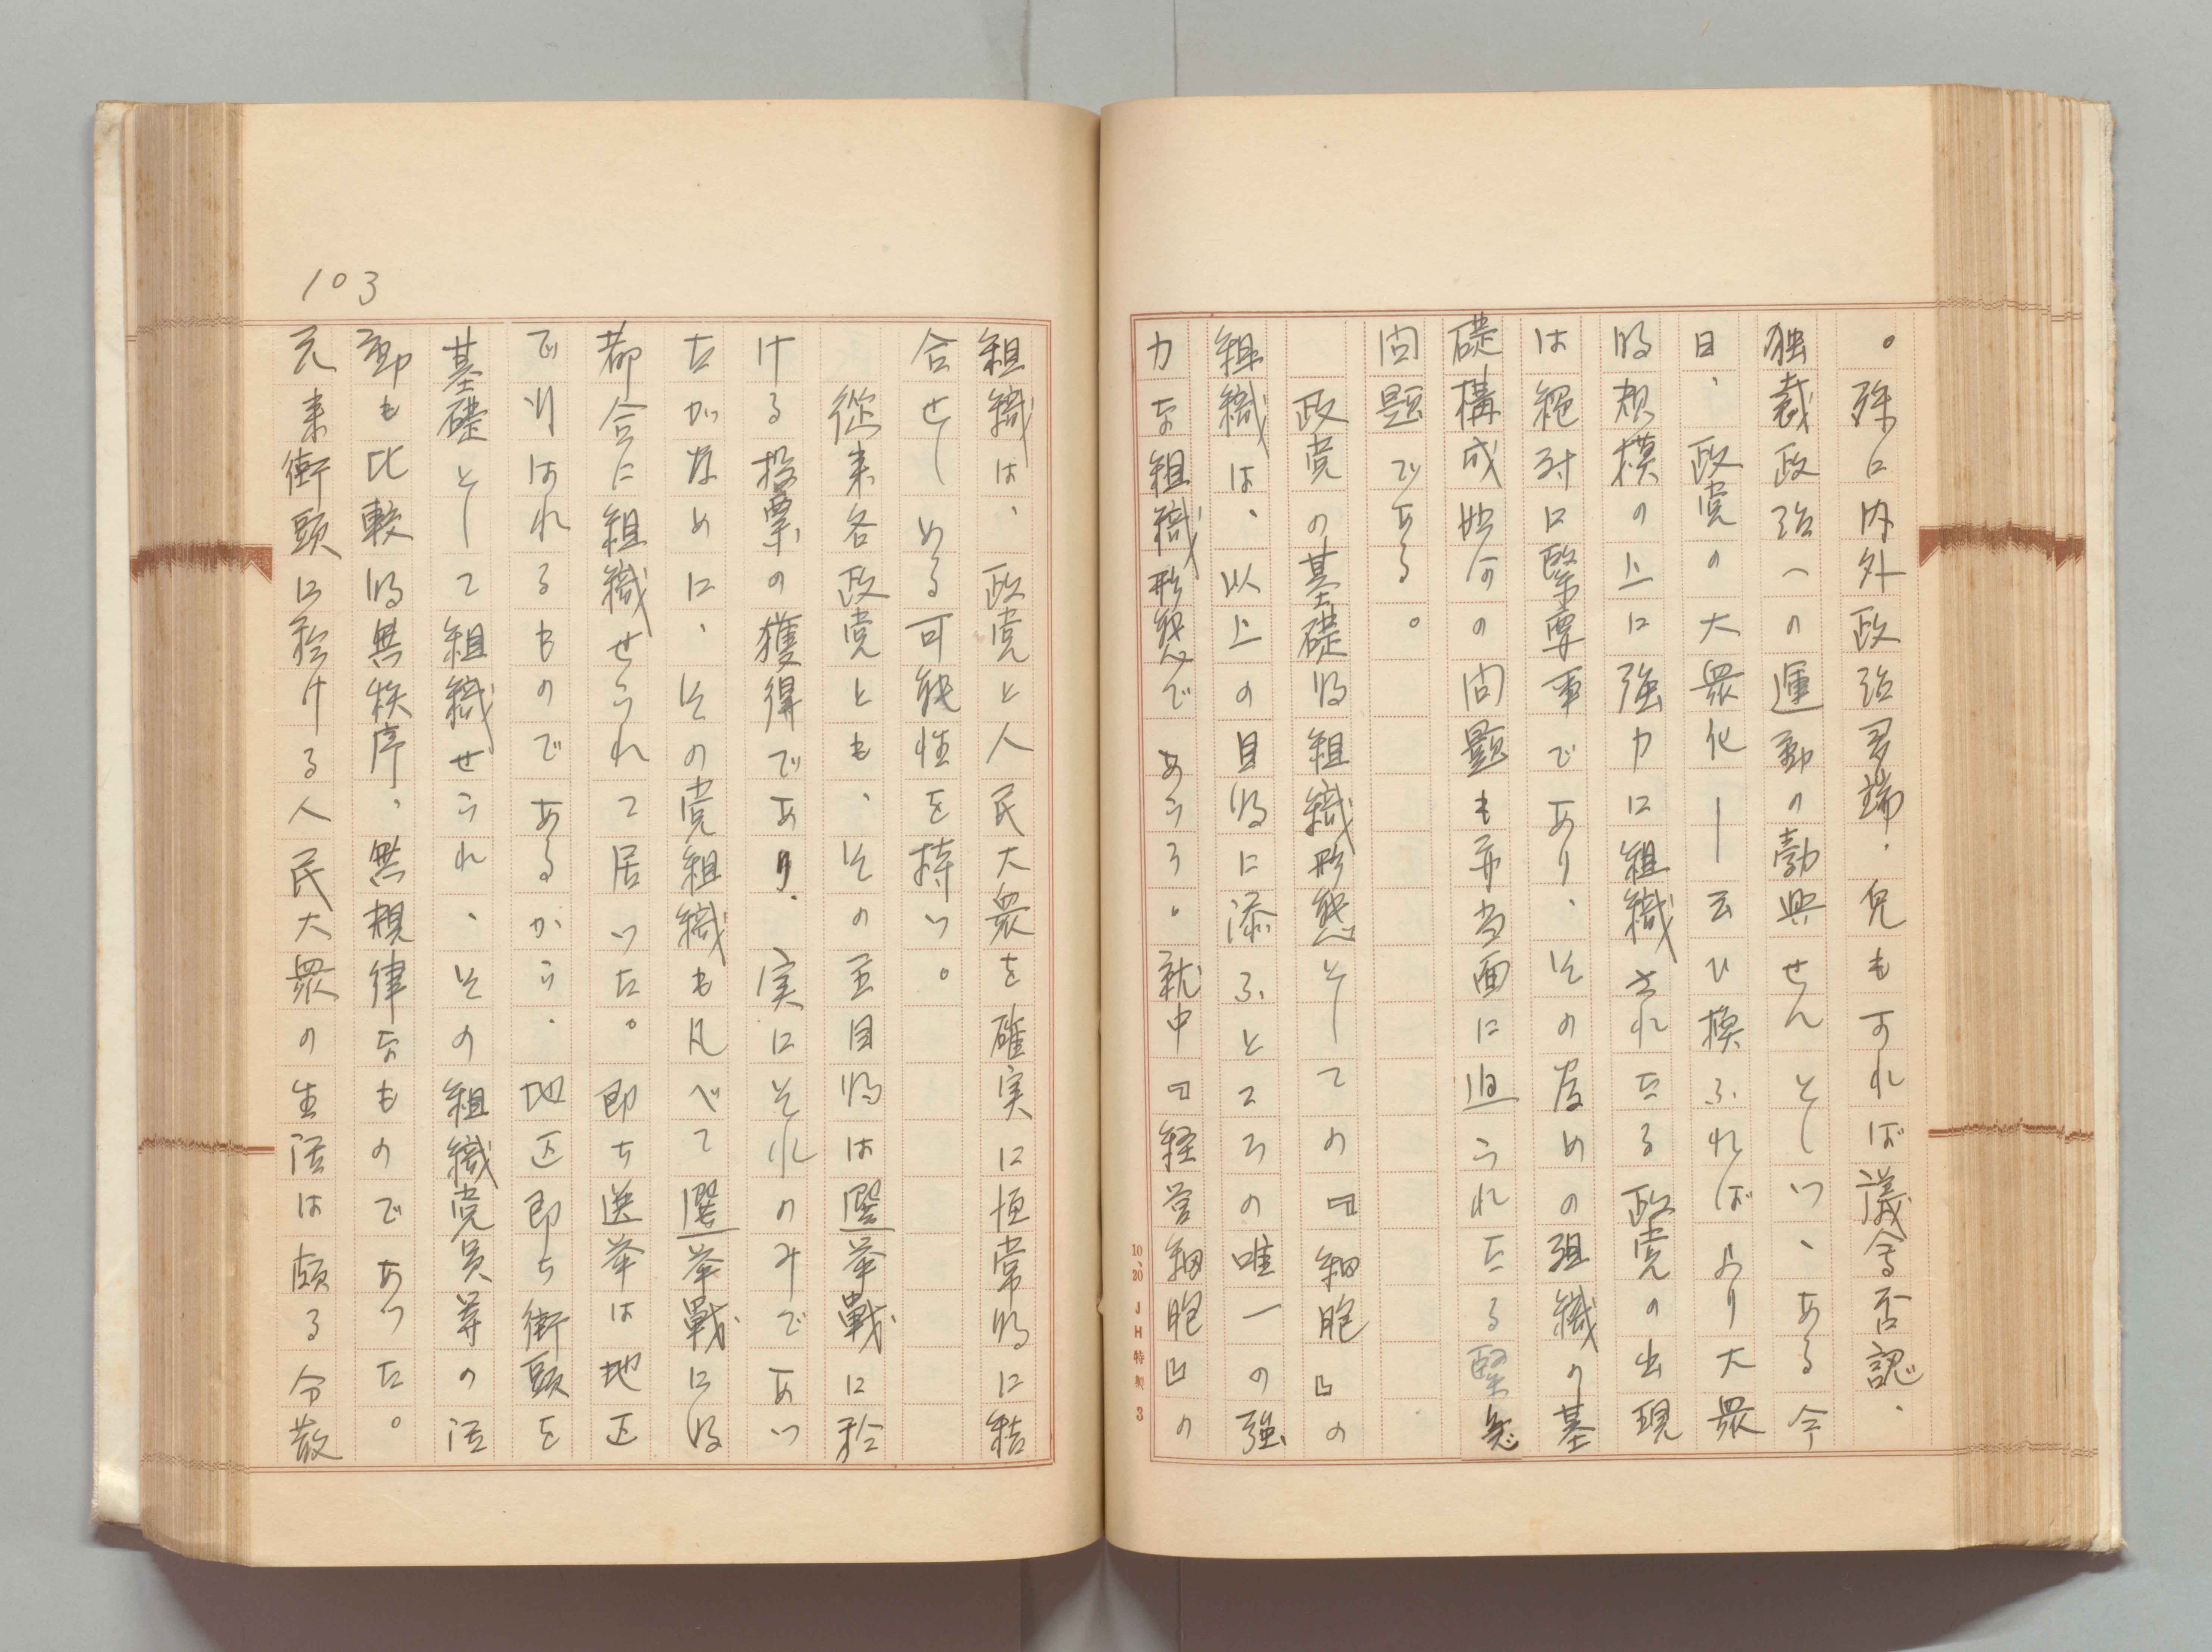 。殊に内外政治多端、兎もすれば議会否認、
独裁政治への運動の勃興せんとしつゝある今
日、政党の大衆化―云ひ換ふればより大衆
的規模の上に強力に組織されたる政党の出現
は絶対に緊要事であり、その為めの組織の基
礎構成如何の問題も亦当面に迫られたる緊急
問題である。
政党の基礎的組織形態としての『細胞』の
組織は、以上の目的に添ふところの唯一の強
力な組織形態であらう。就中『経営細胞』の
10、20 JH特製 3
組織は、政党と人民大衆を確実に恒常的に結
合せしめる可能性を持つ。
従来各政党とも、その主目的は選挙戦に於
ける投票の獲得であり、実にそれのみであつ
たがために、その党組織も凡べて選挙戦に好
都合に組織せられて居つた。即ち選挙は地区
で行はれるものであるから、地区即ち街頭を
基礎として組織せられ、その組織党員等の活
動も比較的無秩序、無規律なものであつた。
元来街頭に於ける人民大衆の生活は頗る分散
103